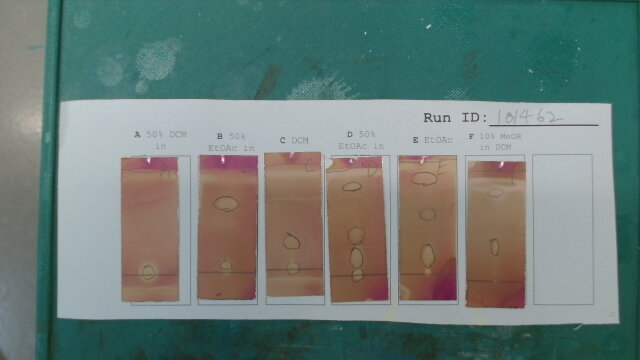 Run ID: 101462
A 50% DCM in
B 50% EtOAc in
C DCM
D 50% EtOAc in
E EtOAc
F 10% MeOH in DCM
A
C
D
E
F